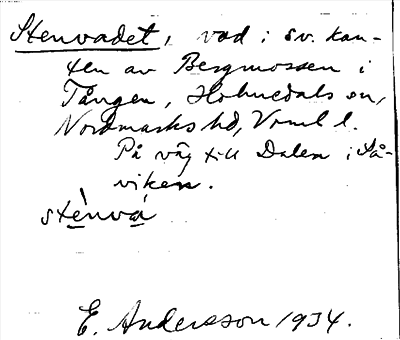 Stenvadet, vad i sv. kan-
ten av Bergmossen i
Tången, Holmedals sn,
Nordmarks hd, Vrml l.
På väg till Dalen i Så-
viken.
stènvá
E. Andersson 1934.